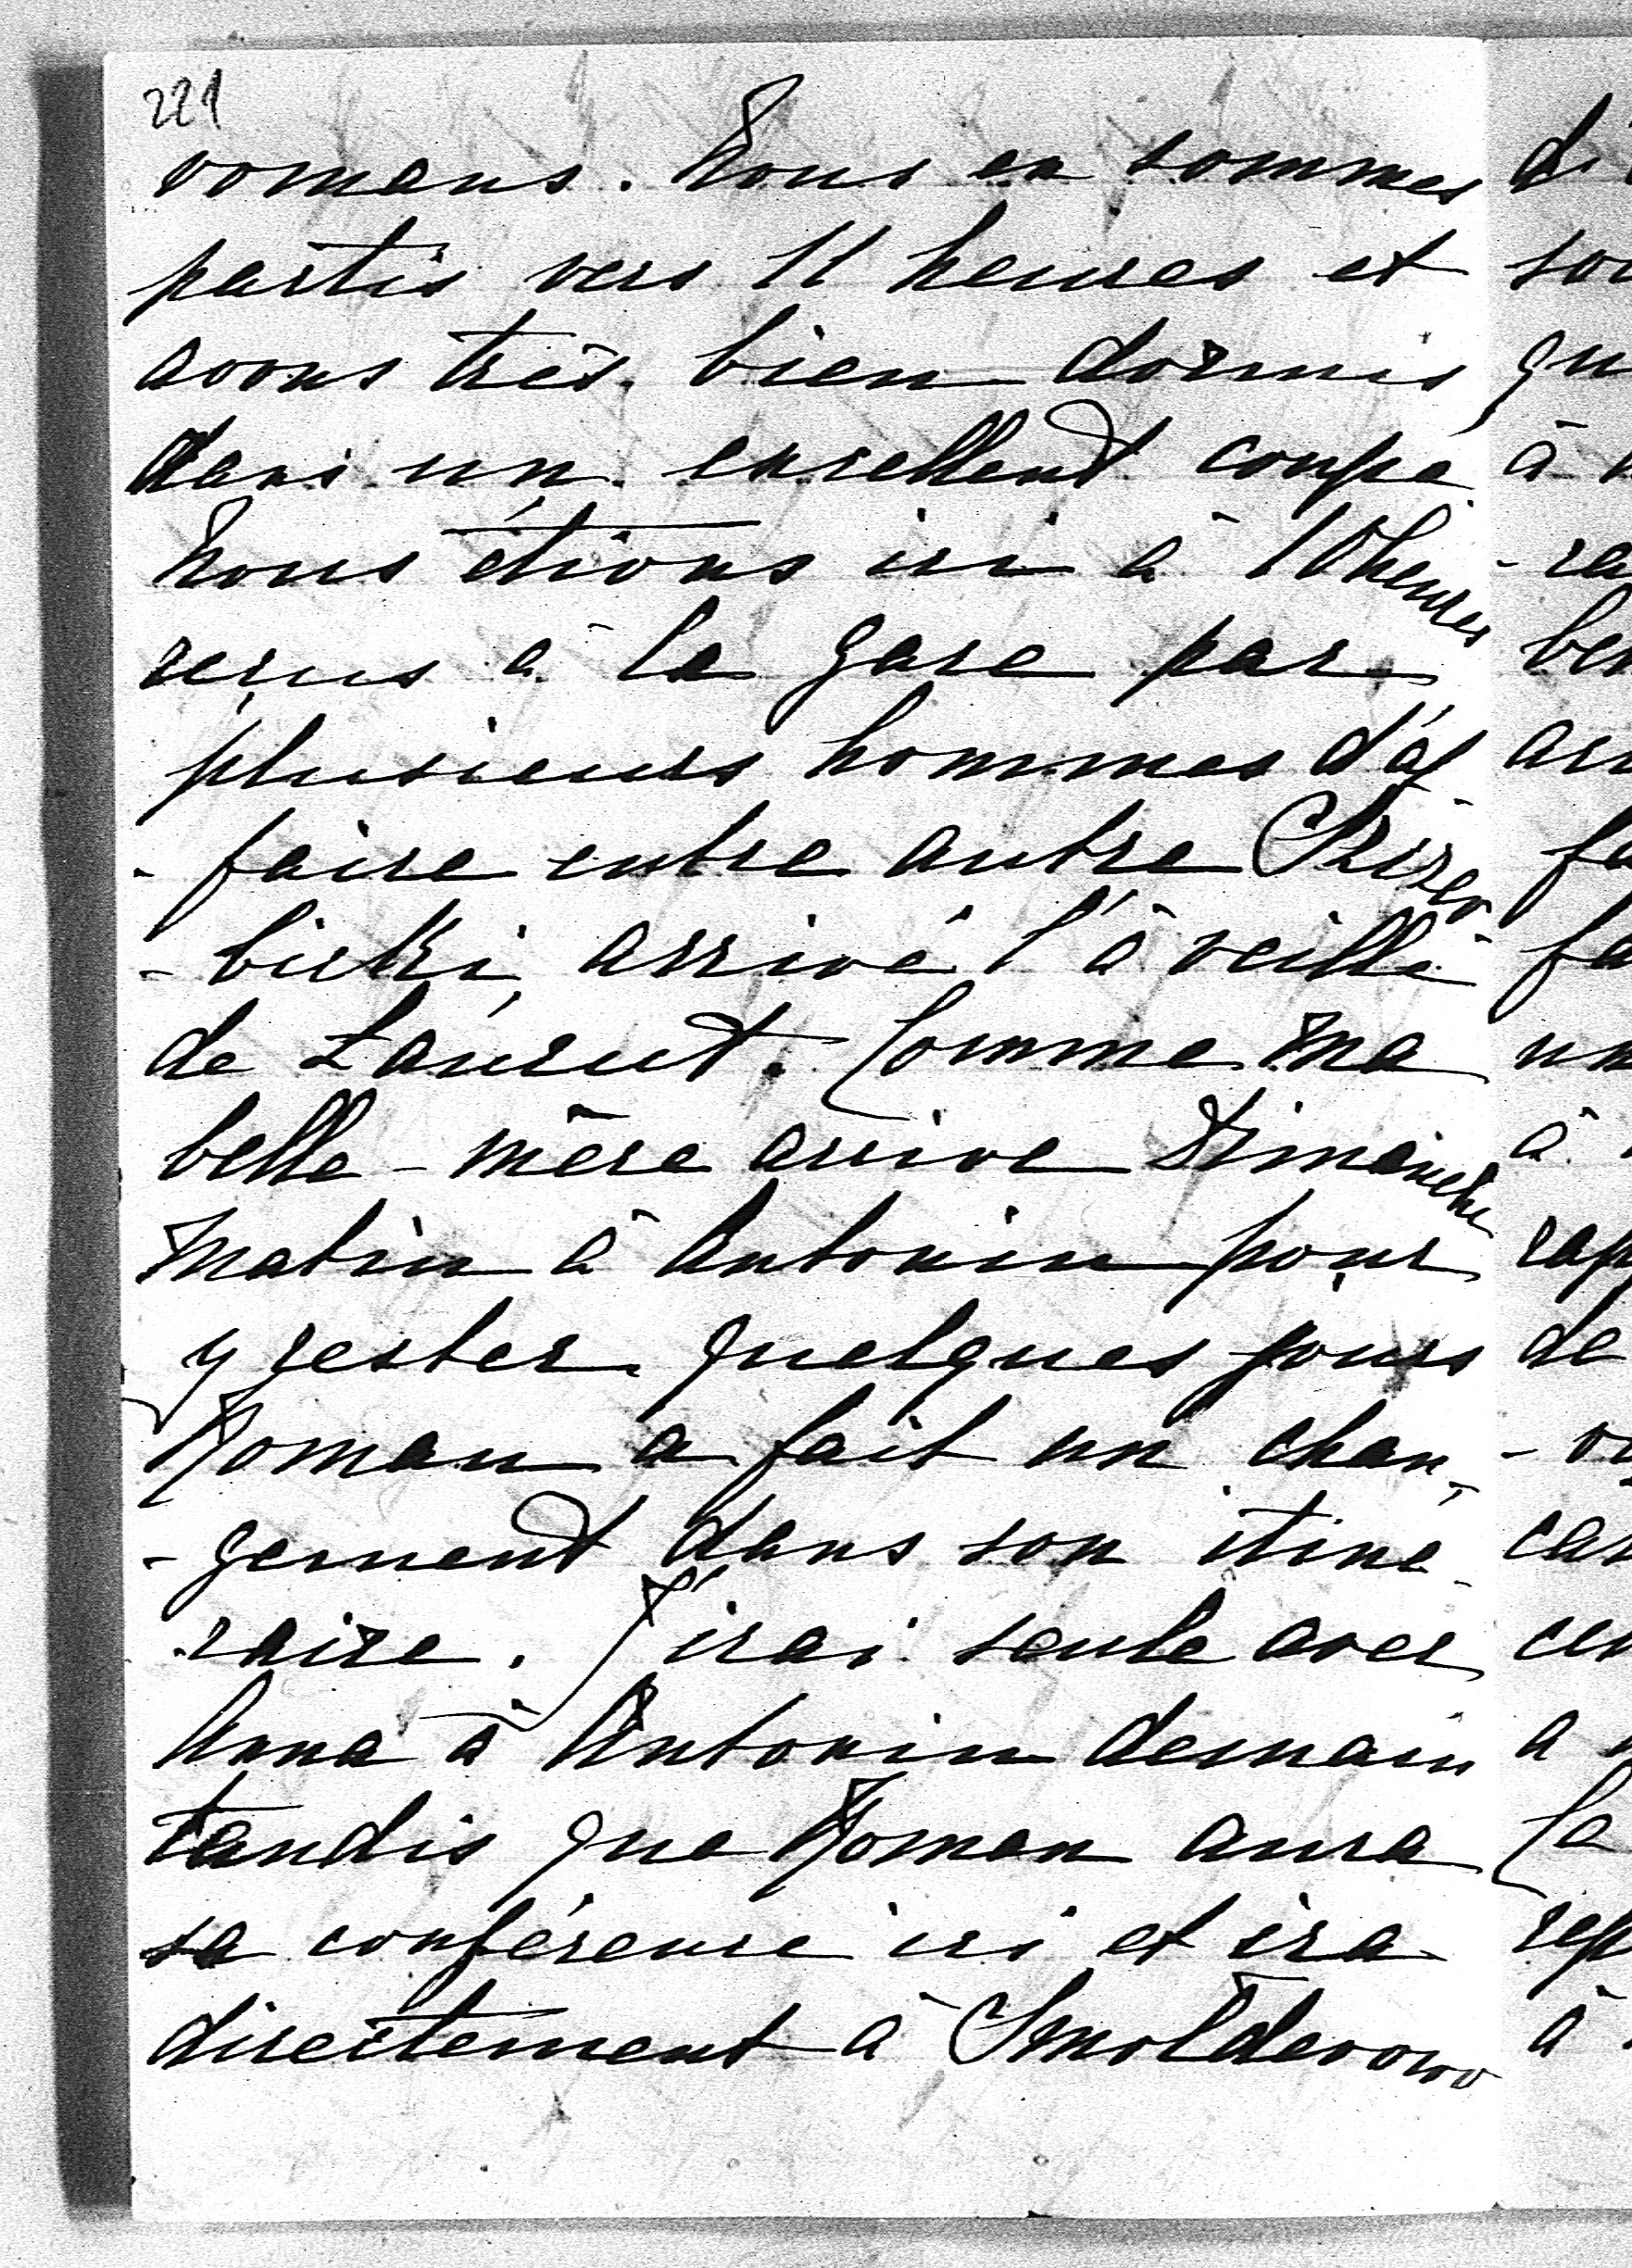 221
romans. Nous en sommes
partis vers 11 heures et
avons très bien dormis
dans un excellent coupé
Nous étions ici à 10 heures
reçus à la gare par
plusieurs hommes d'af
-faire entre autre
-bicki, arrivé l'a veille
de Lancut. Comme ma
belle-mère arrive Dimanche
matin à Antonin pour
y rester quelques jours
Roman a fait un chan-
-gement dans son itiné-
raire. J'irai seule avec
Anna à Antonin demain
tandis que Roman aura
sa conférence ici et ira
directement à Smolderowo